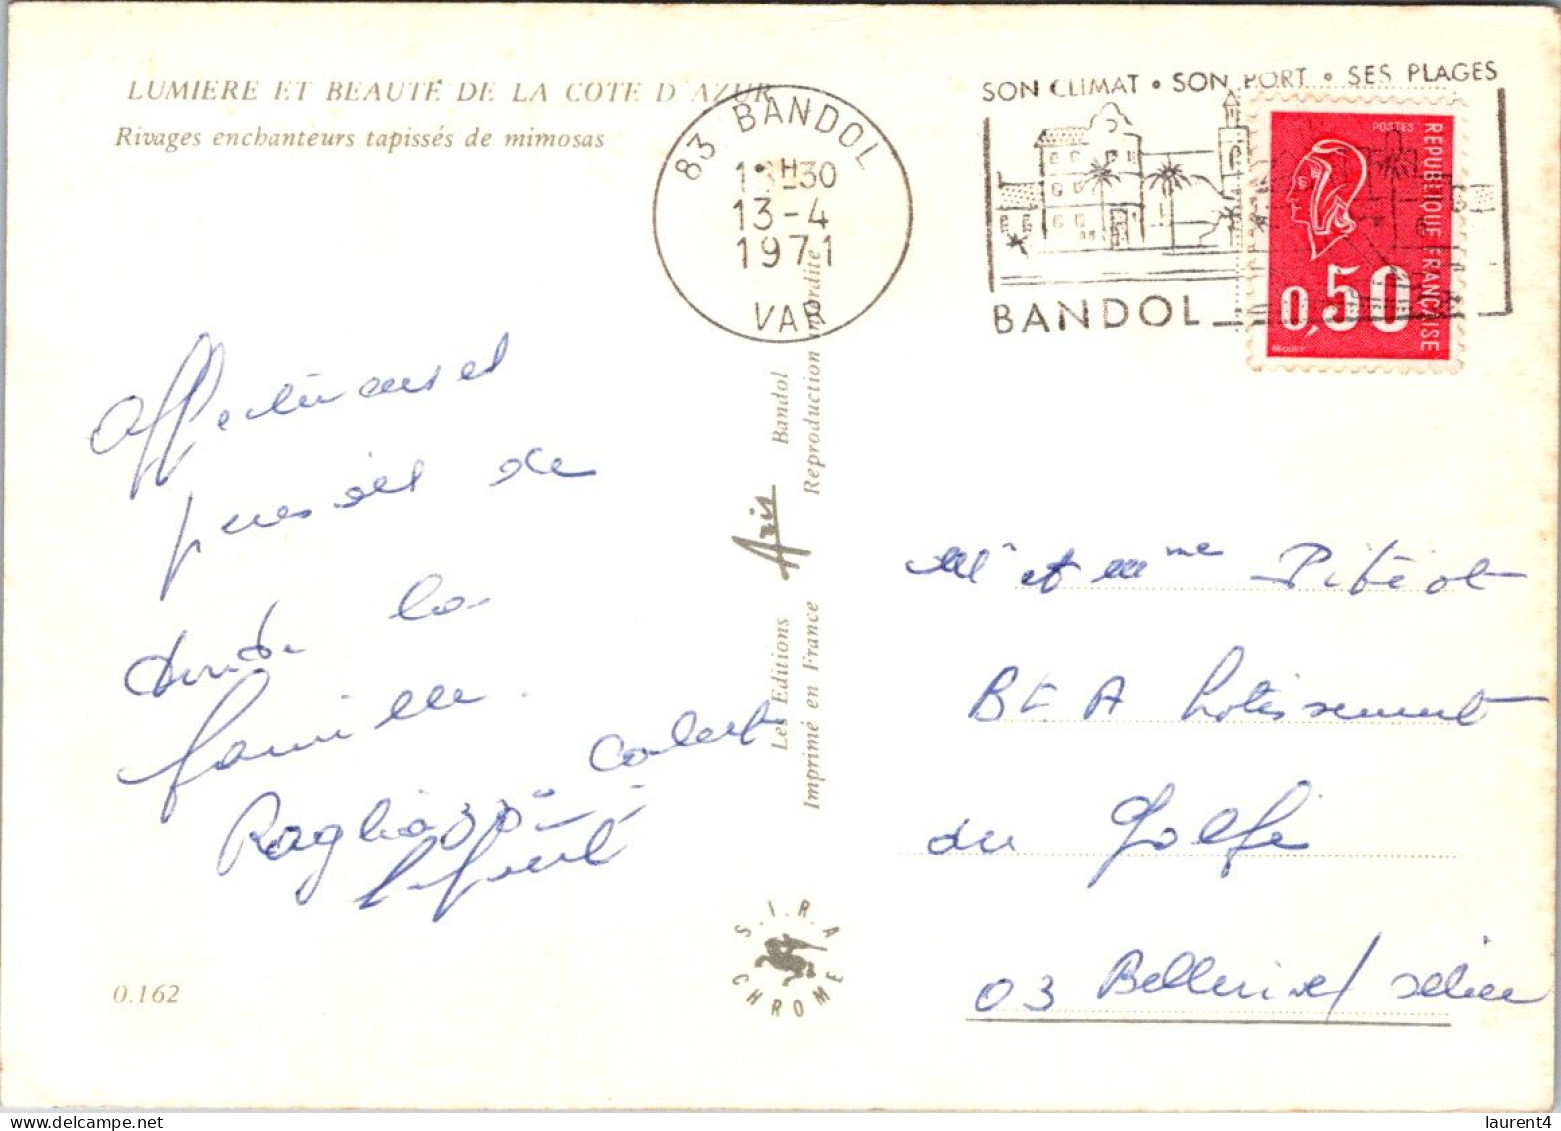 LUMIERE ET BEAUTÉ DE LA COTE D'AZUR
Rivages enchanteurs tapissés de mimosas
83 BANDOL
13-4
1971
VAR
SON CLIMAT • SON PORT • SES PLAGES
BANDOL
POSTES
REPUBLIQUE FRANÇAISE
0,50
BEQUET
Affectueuses
pensées de
toute la
famille.
Les Editions Aris Bandol
Imprimé en France Reproduction interdite
Mr et Mme
BEA Lotissement
du Golfe
03 Bellerive/
S.I.R.A
CHROME
0.162
laurent4